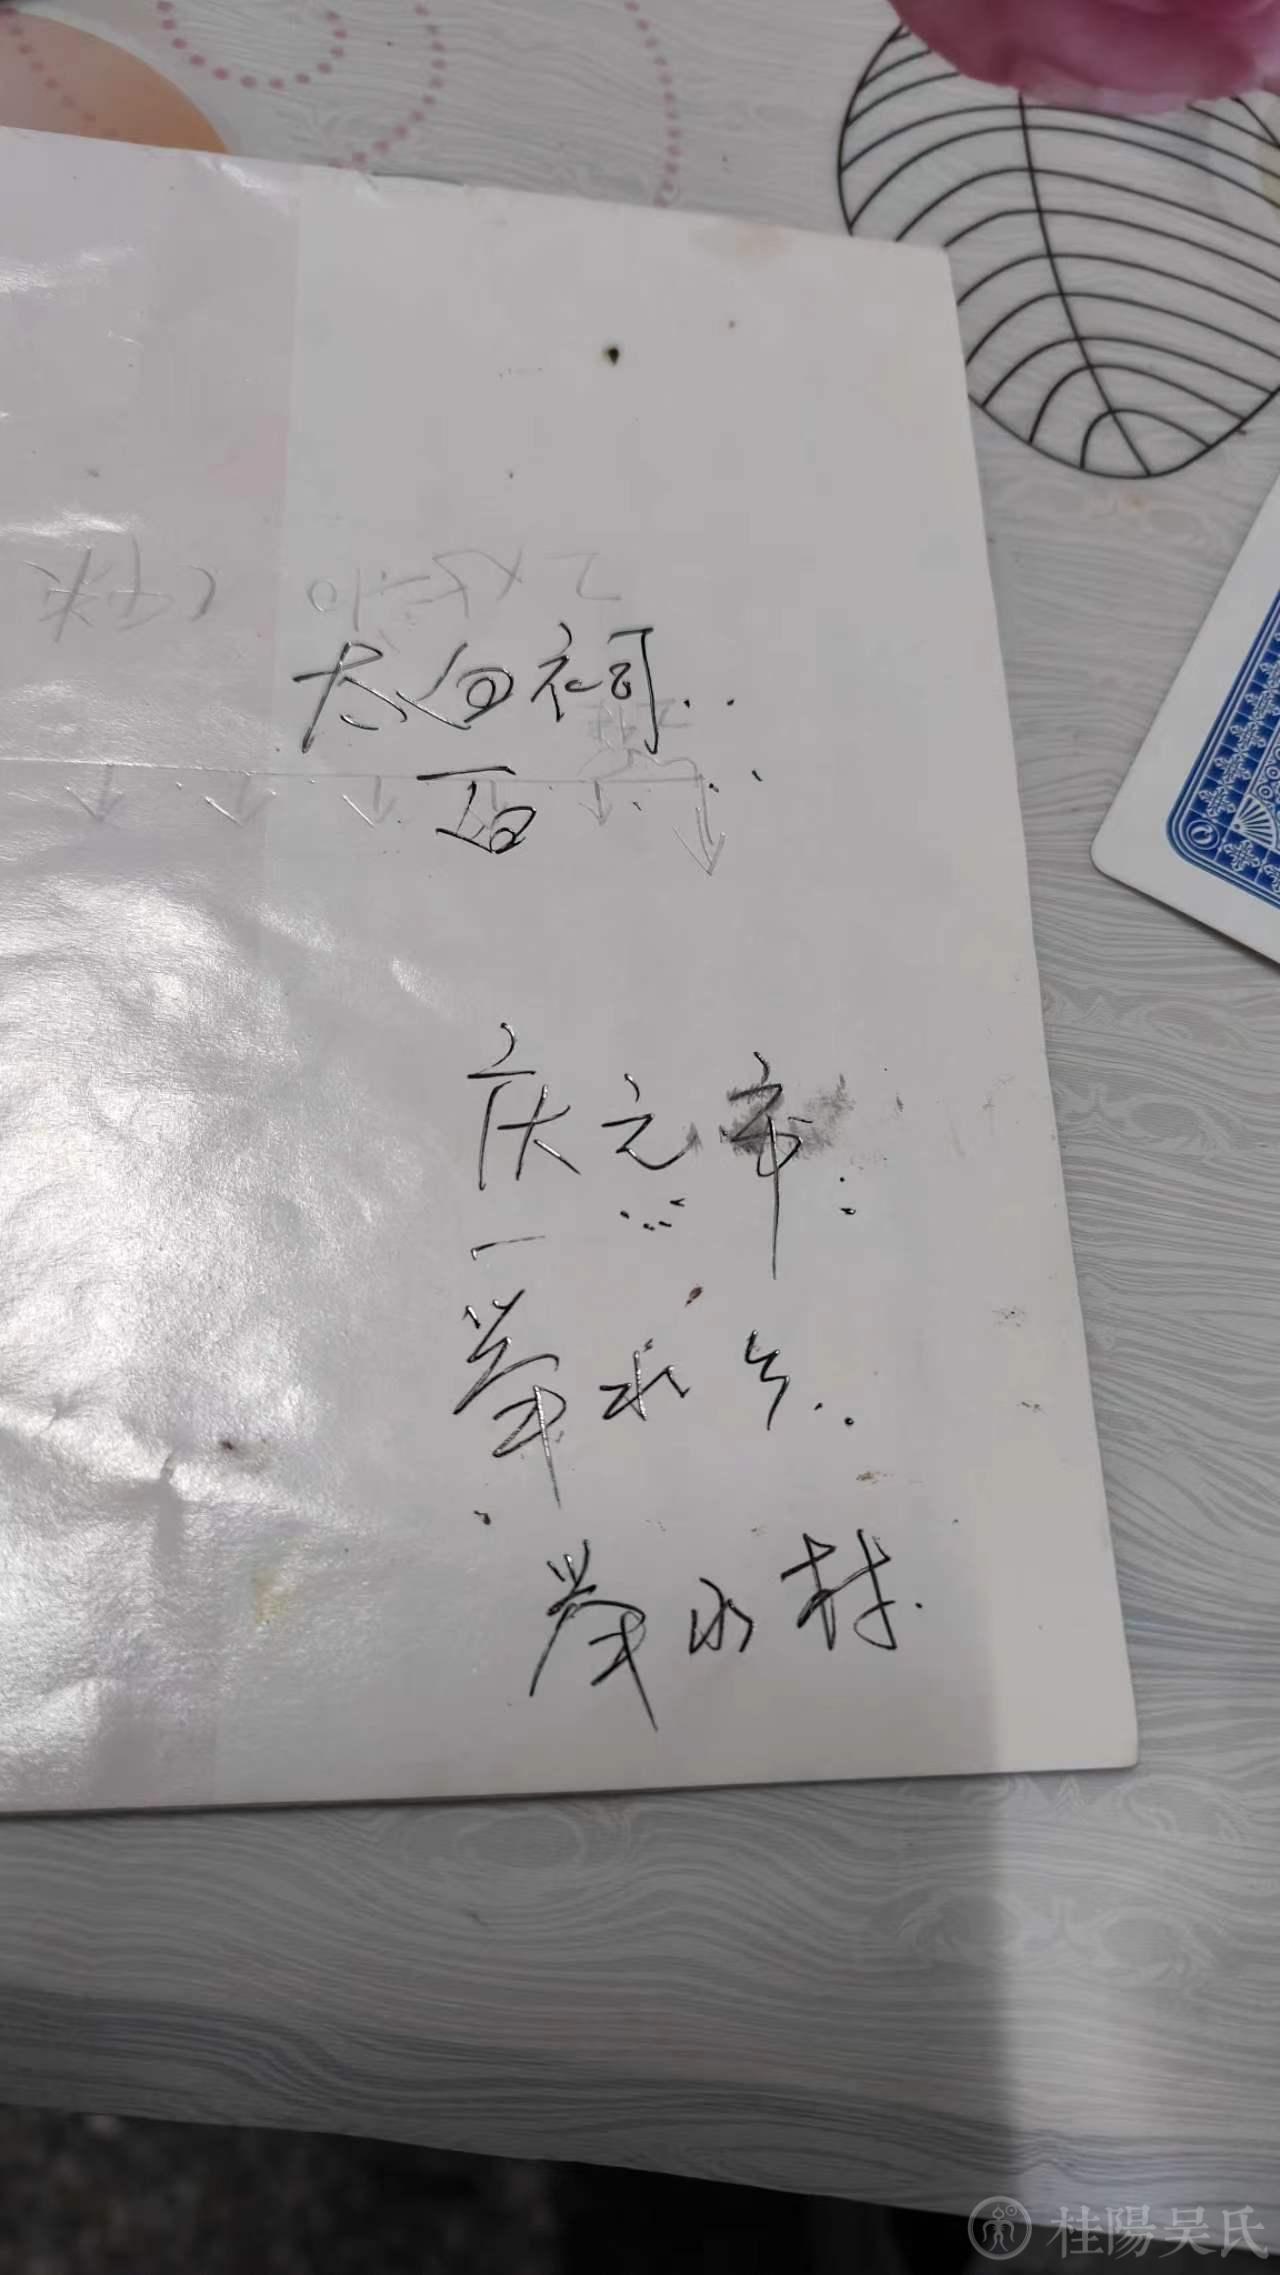 太白祠..
百
庆元市:
一
举水乡..
举水村.
桂陽吴氏